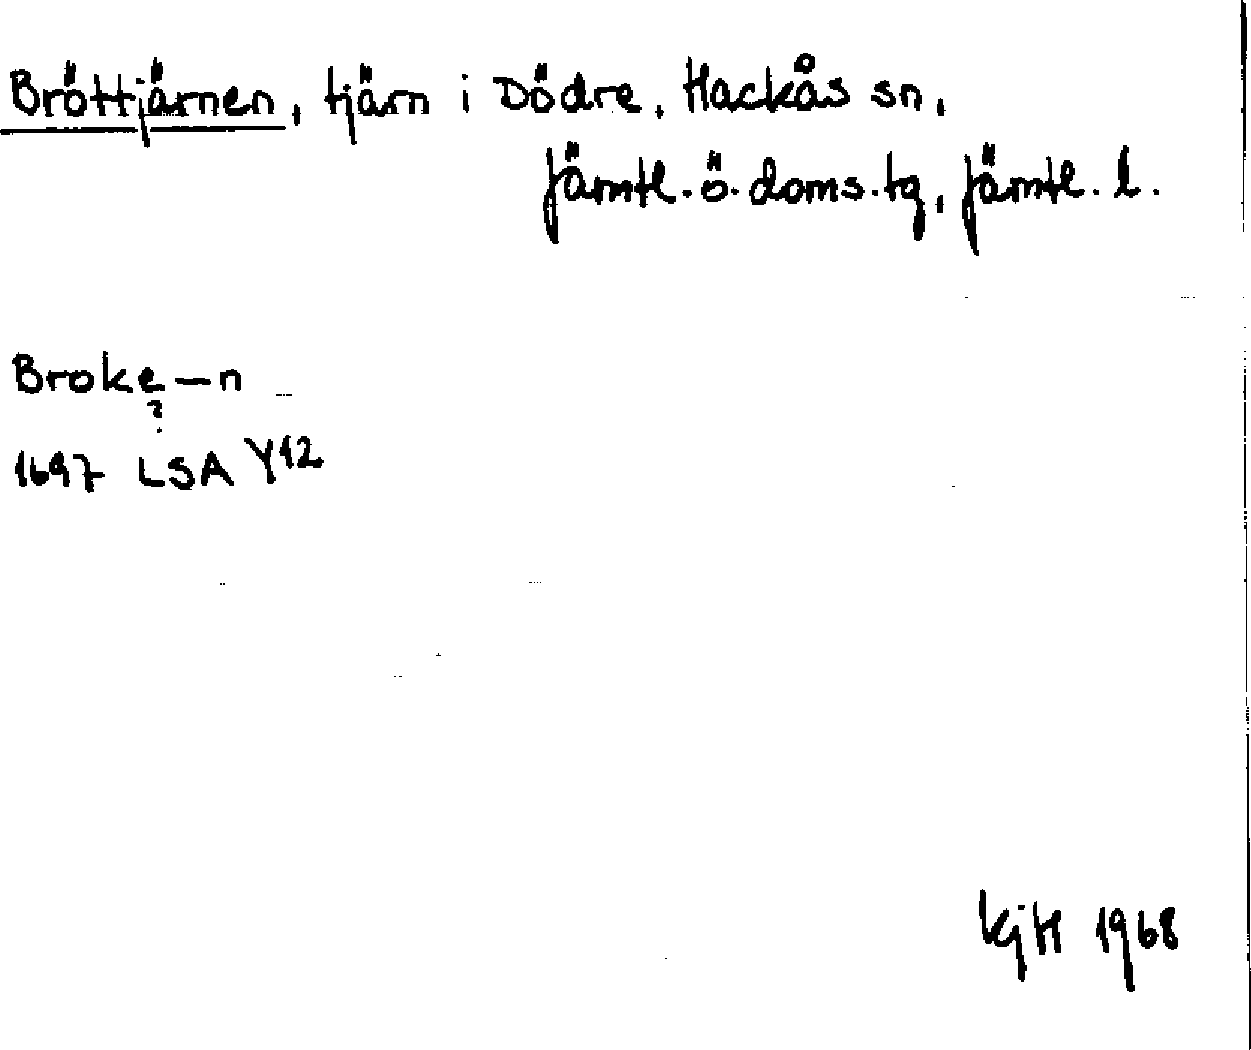 Bröttjärnen, tjärn i Dödre, Hackås sn,
Jämtl. ö. doms. tg, Jämtl. l.
Broke—n
?
1697 LSA Y12
KjH 1968